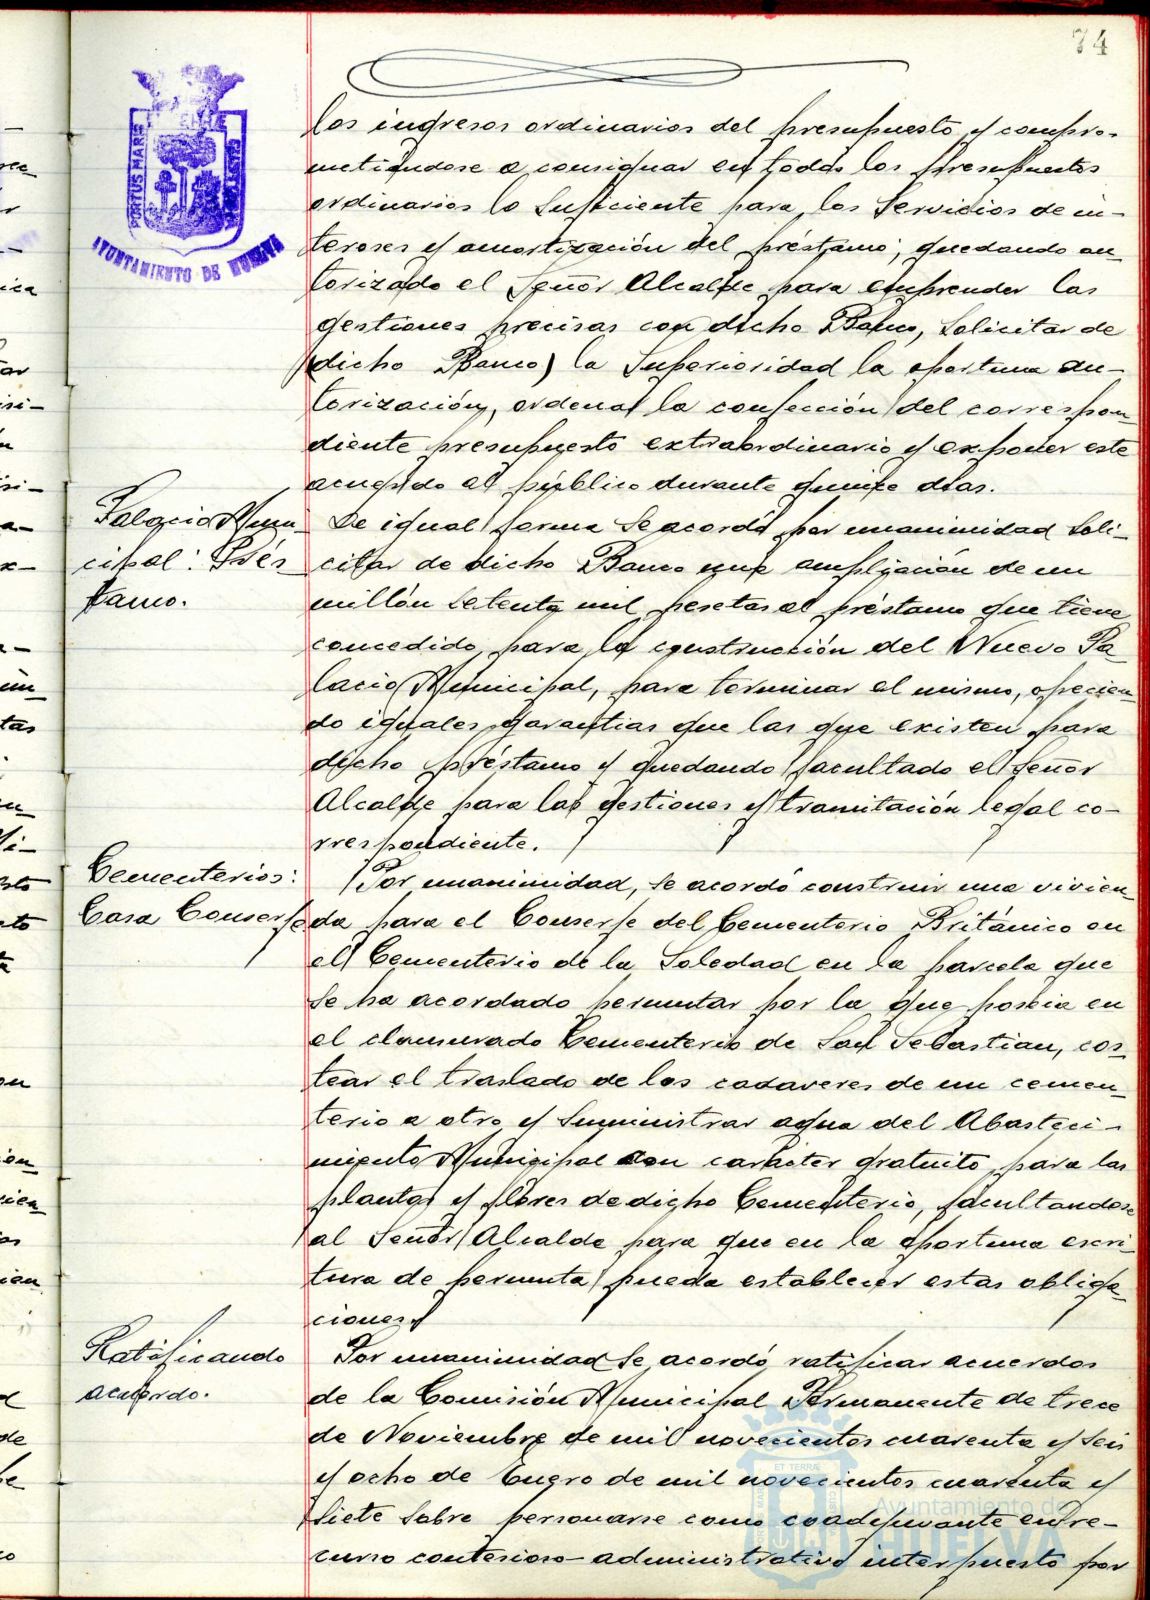 74
PORTUS MARIS
AYUNTAMIENTO DE HUELVA
los ingresos ordinarios del presupuesto y compro-
metiéndose a consignar en todos los presupuestos
ordinarios lo suficiente para los servicios de in-
tereses y amortización del préstamo, quedando au-
torizado el Señor Alcalde para emprender las
gestiones precisas con dicho Banco, solicitar de
(dicho Banco) la Superioridad la oportuna au-
torización, ordenar la confección del correspon-
diente presupuesto extraordinario y exponer este
acuerdo al público durante quince días.
Palacio Muni-
cipal: Prés-
tamo.
De igual forma se acordó por unanimidad soli-
citar de dicho Banco una ampliación de un
millón setenta mil pesetas al préstamo que tiene
concedido para la construcción del Nuevo Pa-
lacio Municipal, para terminar el mismo, ofrecien-
do iguales garantías que las que existen para
dicho préstamo y quedando facultado el Señor
Alcalde para las gestiones y tramitación legal co-
rrespondiente.
Cementerios:
Casa Conserje
Por unanimidad, se acordó construir una vivien-
da para el Conserje del Cementerio Británico en
el Cementerio de la Soledad en la parcela que
se ha acordado permutar por la que poseia en
el clausurado Cementerio de San Sebastian, cos-
tear el traslado de los cadaveres de un cemen-
terio a otro y suministrar agua del Abasteci-
miento Municipal con carácter gratuito para las
plantas y flores de dicho Cementerio, facultandose
al Señor Alcalde para que en la oportuna escri-
tura de permuta pueda establecer estas obliga-
ciones.
Ratificando
acuerdo.
Por unanimidad se acordó ratificar acuerdos
de la Comisión Municipal Permanente de trece
de Noviembre de mil novecientos cuarenta y seis
y ocho de Enero de mil novecientos cuarenta y
siete sobre personarse como coadyuvante en re-
curso contencioso-administrativo interpuesto por
Ayuntamiento de
HUELVA